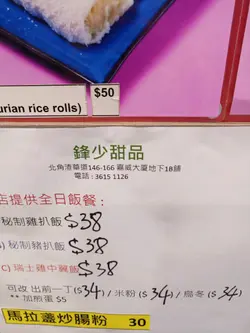 urian rice rolls)
$50
鋒少甜品
北角渣華道146-166 嘉威大廈地下18舖
電話 : 3615 1126
店提供全日飯餐 :
秘制雞扒飯 $38
) 秘制豬扒飯 $38
C) 瑞士雞中翼飯 $38
可改 出前一丁 ($34) / 米粉 ($34) / 烏冬 ($34)
** 加煎蛋 $5
馬拉盞炒腸粉 30